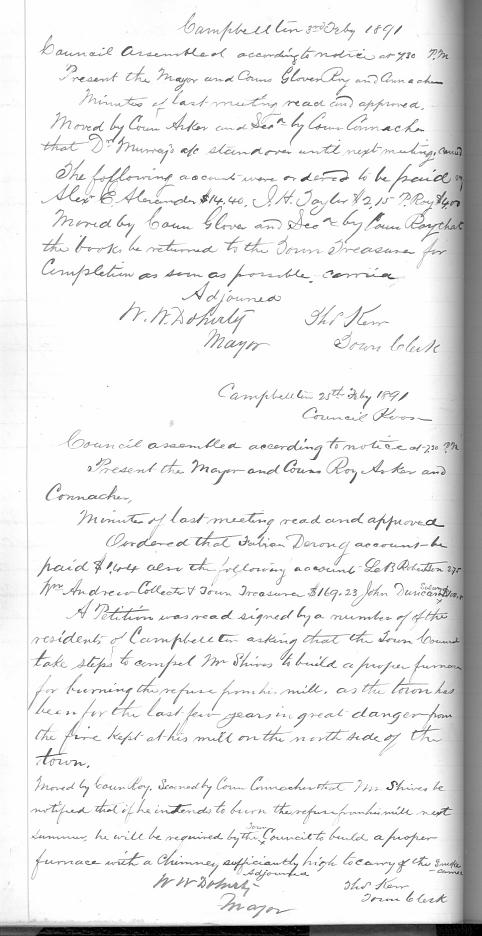 Campbellton 3rd Feby 1891
Council assembled according to notice at 7.30 P.M
Present the Mayor and Couns Glover Roy and Connacher
Minutes of last meeting read and approved.
Moved by Coun Asker and Secd by Coun Connacher
that Dr Murray's a/c stand over until next meeting, carried
The following accounts were ordered to be paid
Alex E Alexander $14.40, J. H. Taylor $2.15 P. Roy $4.00
Moved by Coun Glover and Secd by Coun Roy that
the books be returned to the Town Treasurer for
Completion as soon as possible, carried
Adjourned
W. W. Doherty Thos Kerr
Mayor Town Clerk
Campbellton 25th Feby 1891
Council Room
Council assembled according to notice at 7.30 P.M
Present the Mayor and Couns Roy Asker and
Connacher,
Minutes of last meeting read and approved
Oordered that account be
paid also the following account Robertson 2.75
Wm Andrew Collector & Town Treasurer $169.23 John Duncan Salary
A Petition was read signed by a number of the
residents of Campbellton asking that the Town Council
take steps to compel Mr Shives to build a proper furnace
for burning the refuse from his mill, as the town has
been for the last few years in great danger from
the fire kept at his mill on the north side of the
town.
Moved by Coun Roy, Seconed by Coun Connacher that Mr Shives be
notified that if he intends to burn the refuse from his mill next
summer, he will be required by the Town Council to build a proper
furnace with a Chimney sufficiently high to carry of the smoke
carried
Adjourned
W W Doherty Thos Kerr
Mayor Town Clerk